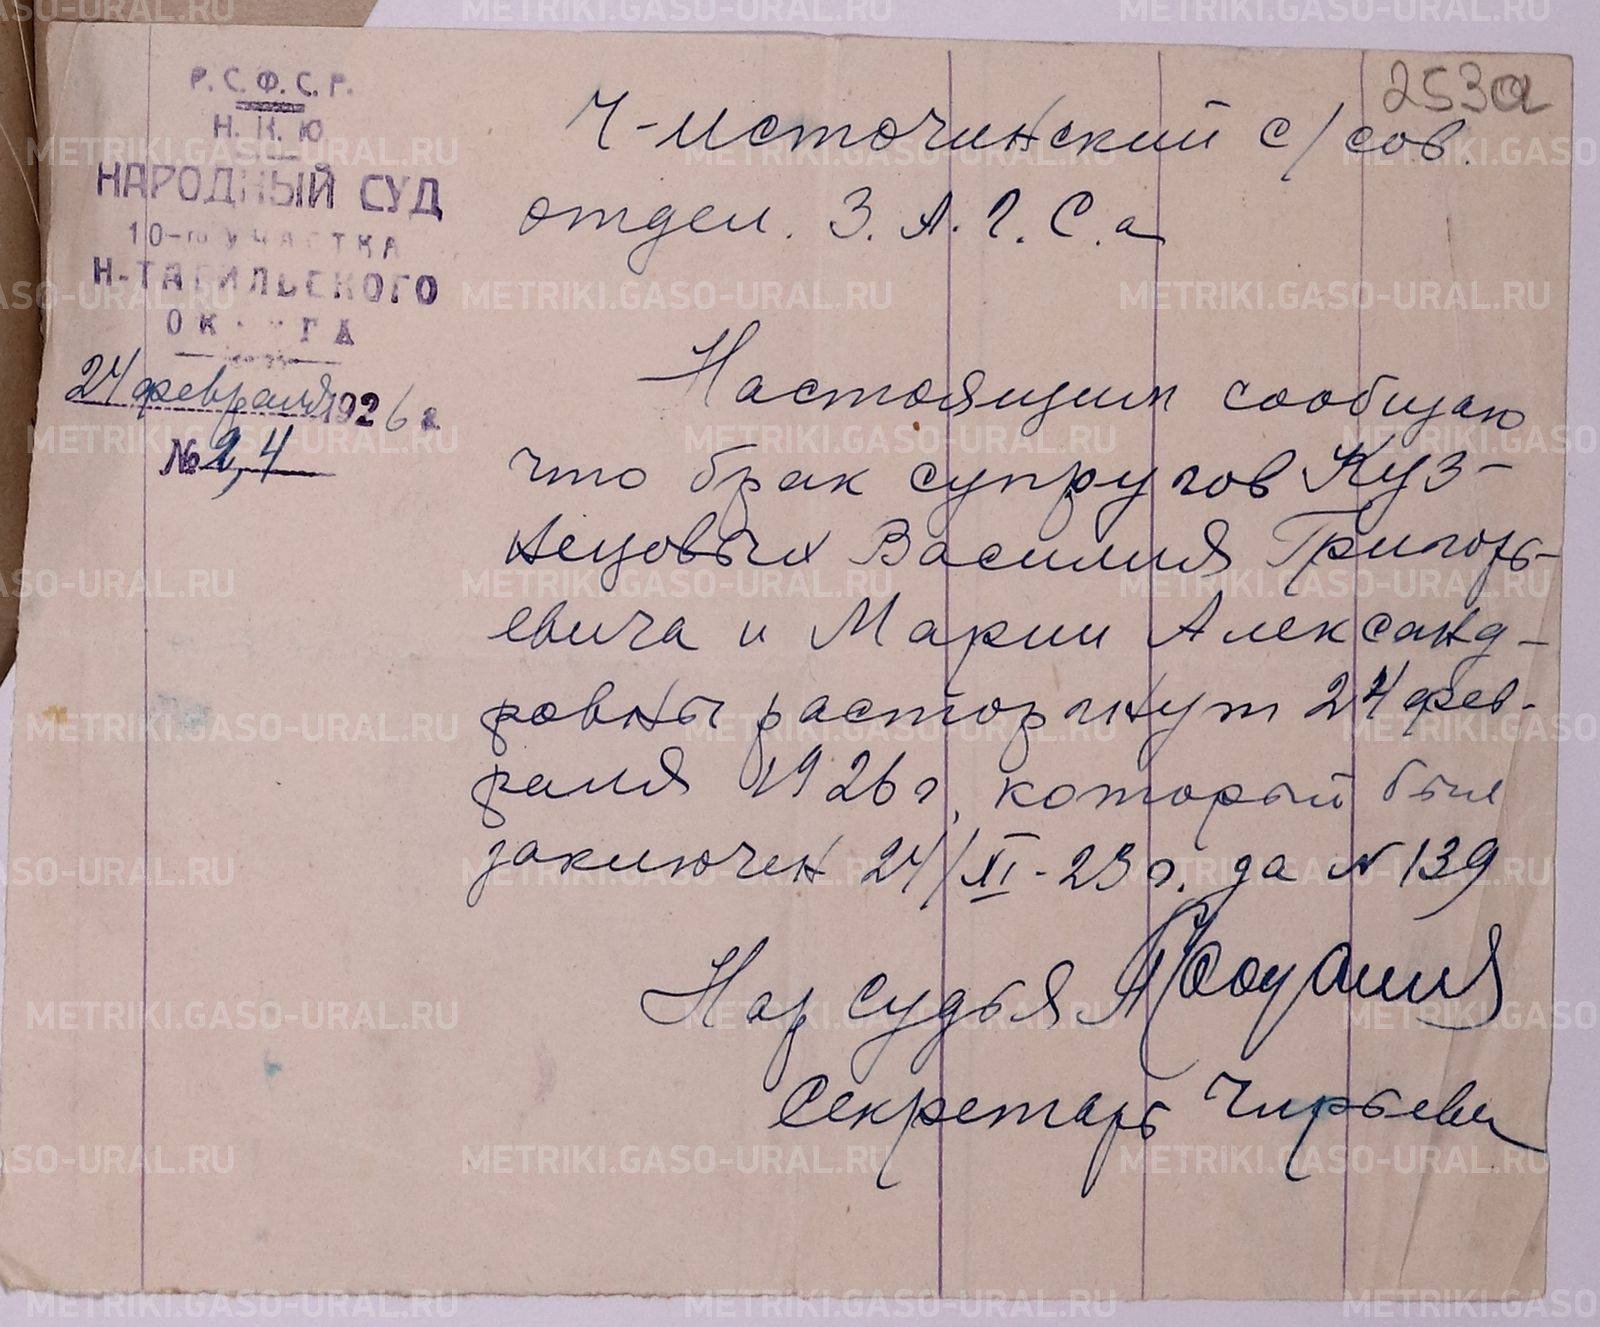 253а
Р.С.Ф.С.Р.
Н.К.Ю
НАРОДНЫЙ СУД
10-го УЧАСТКА
Н-ТАГИЛЬСКОГО
ОКРУГА
24 февраля 1926 г.
№ 2,4
Ч-источинский с/сов.
отдел. З.А.Г.С.а
Настоящим сообщаю
что брак супругов Куз-
нецовых Василия Григорь-
евича и Марии Александ-
ровны расторгнут 24 фев-
раля 1926 г. который был
заключен 24/XI-23 г. за № 139
Нар судья
Секретарь
METRIKI.GASO-URAL.RU